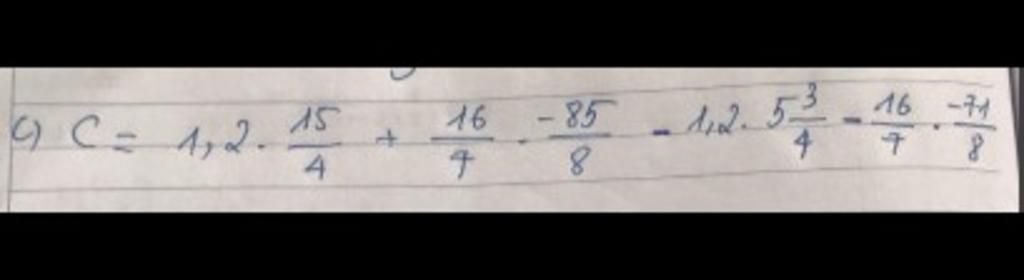 c) C = 1,2 . 15/4 + 16/7 . -85/8 - 1,2 . 5 3/4 - 16/7 . -71/8